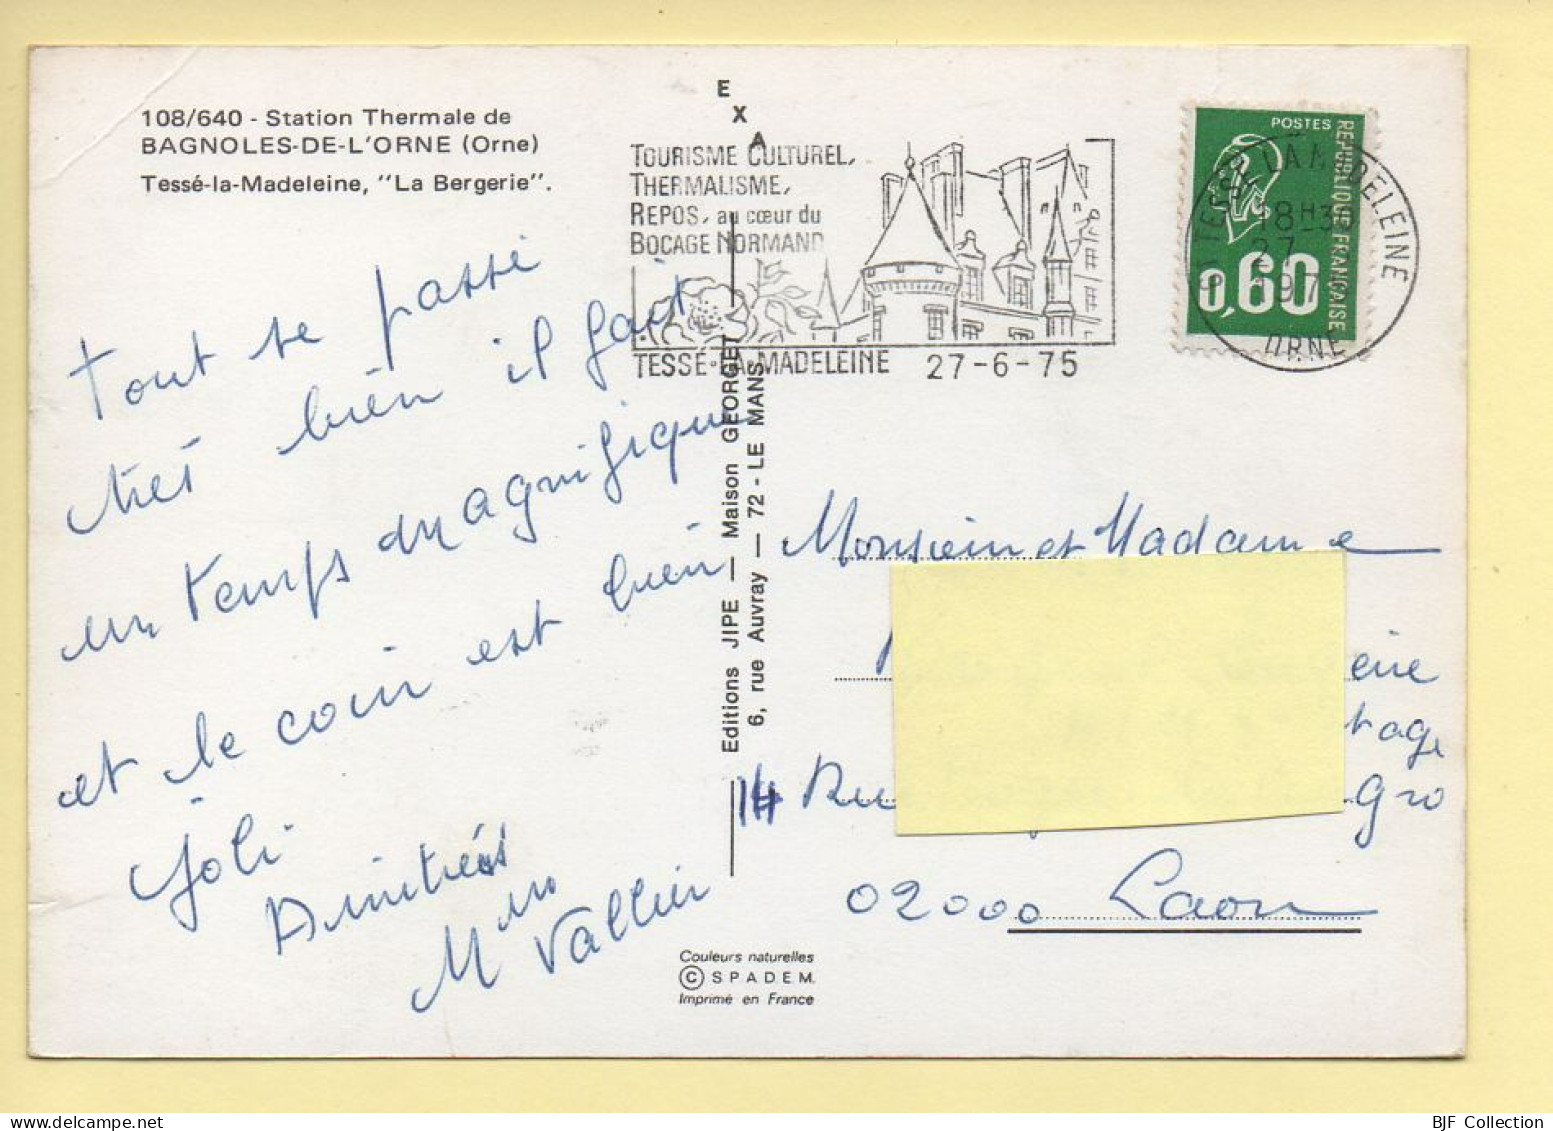 108/640 - Station Thermale de
BAGNOLES-DE-L'ORNE (Orne)
Tessé-la-Madeleine, "La Bergerie".
EXA
TOURISME CULTUREL,
THERMALISME,
REPOS, au cœur du
BOCAGE NORMAND
TESSÉ-LA-MADELEINE 27-6-75
POSTES
REPUBLIQUE FRANÇAISE
0,60
TESSE LA MADELEINE
18H30
27
197
ORNE
Tout se passe
très bien il fait
un temps magnifique
et le coin est bien
joli
Amitiés
Mme Vallier
Editions JIPE — Maison GEORGET
6, rue Auvray — 72 - LE MANS
Monsieur et Madame
eine
tage
14 Rue
Gro
02000 Laon
Couleurs naturelles
© SPADEM
Imprimé en France
BJF Collection